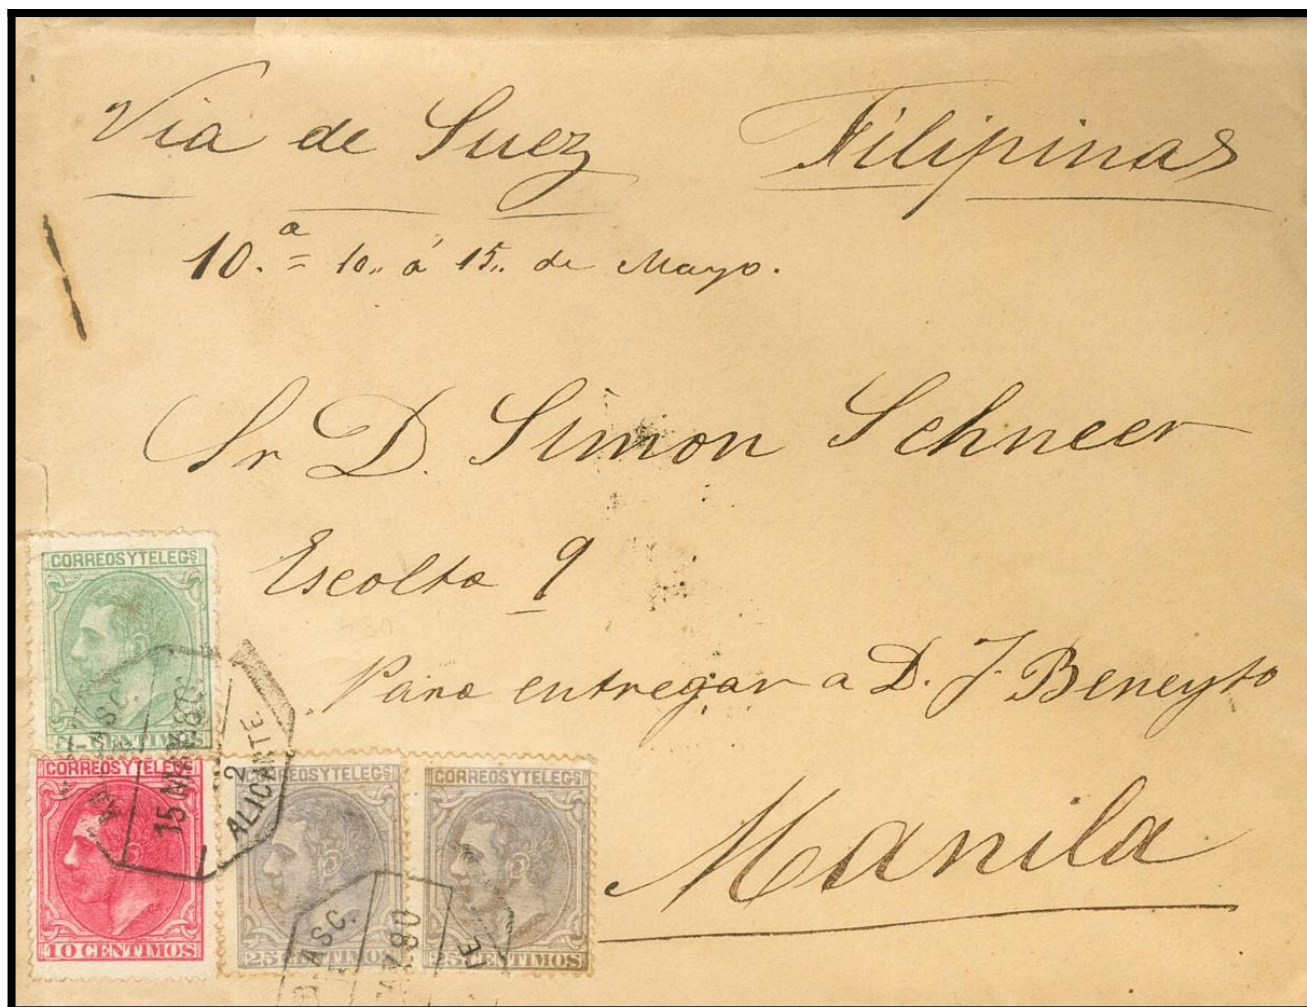 Via de Suez Filipinas
10.ª = 10,, á 15,, de Mayo.
Sr D. Simon Schneer
Escolta 9
Para entregar a D. J. Beneyto
Manila
CORREOS Y TELEGS
CENTIMOS
CORREOS Y TELEGS
10 CENTIMOS
CORREOS Y TELEGS
25 CENTIMOS
CORREOS Y TELEGS
25 CENTIMOS
ASC.
15 80
2
ALICANTE
ASC.
80
TE